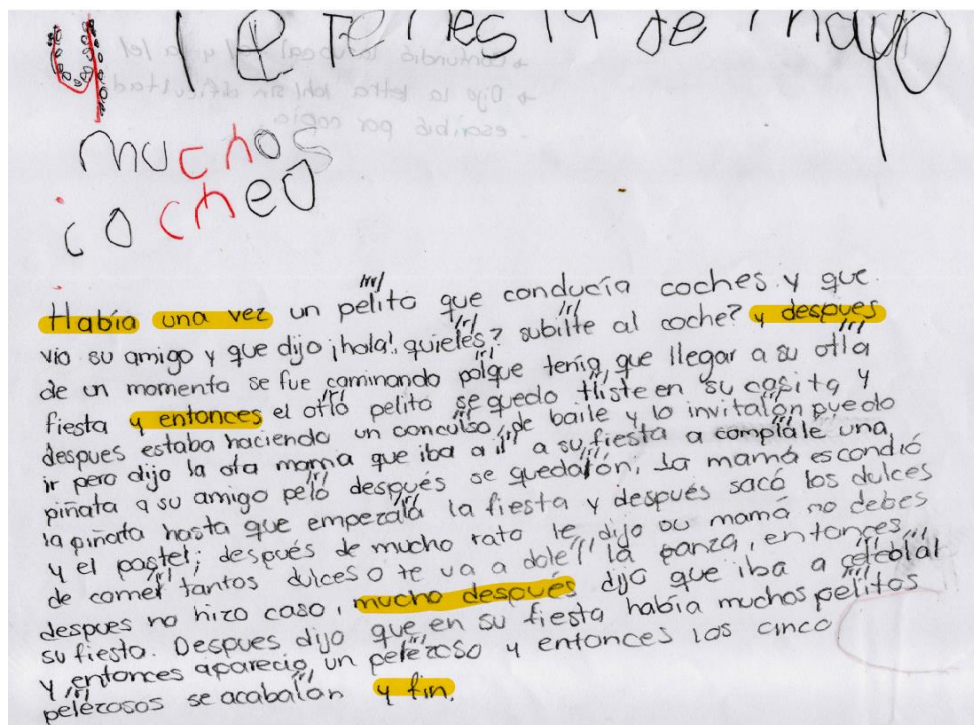 Viernes 19 de mayo
muchos
cocheo
Había una vez un pelito que conducía coches y que
vio su amigo y que dijo ¡hola!, quieles? subilte al coche? y después
de un momento se fue caminando polque tenía que llegar a su otla
fiesta y entonces el otlo pelito se quedo tliste en su casita y
despues estaba haciendo un conculso de baile y lo invitalon puedo
ir pero dijo la ota mama que iba a il a su fiesta a complale una
piñata a su amigo pelo después se quedalon, La mamá escondió
la piñata hasta que empezala la fiesta y después sacó los dulces
y el pastel; después de mucho rato le dijo su mamá no debes
de comel tantos dulces o te va a dolel la panza, entonces
despues no hizo caso, mucho después dijo que iba a celeblal
su fiesta. Despues dijo que en su fiesta había muchos pelitos
y entonces aparecio un pelezoso y entonces los cinco
pelezosos se acabalon y fin